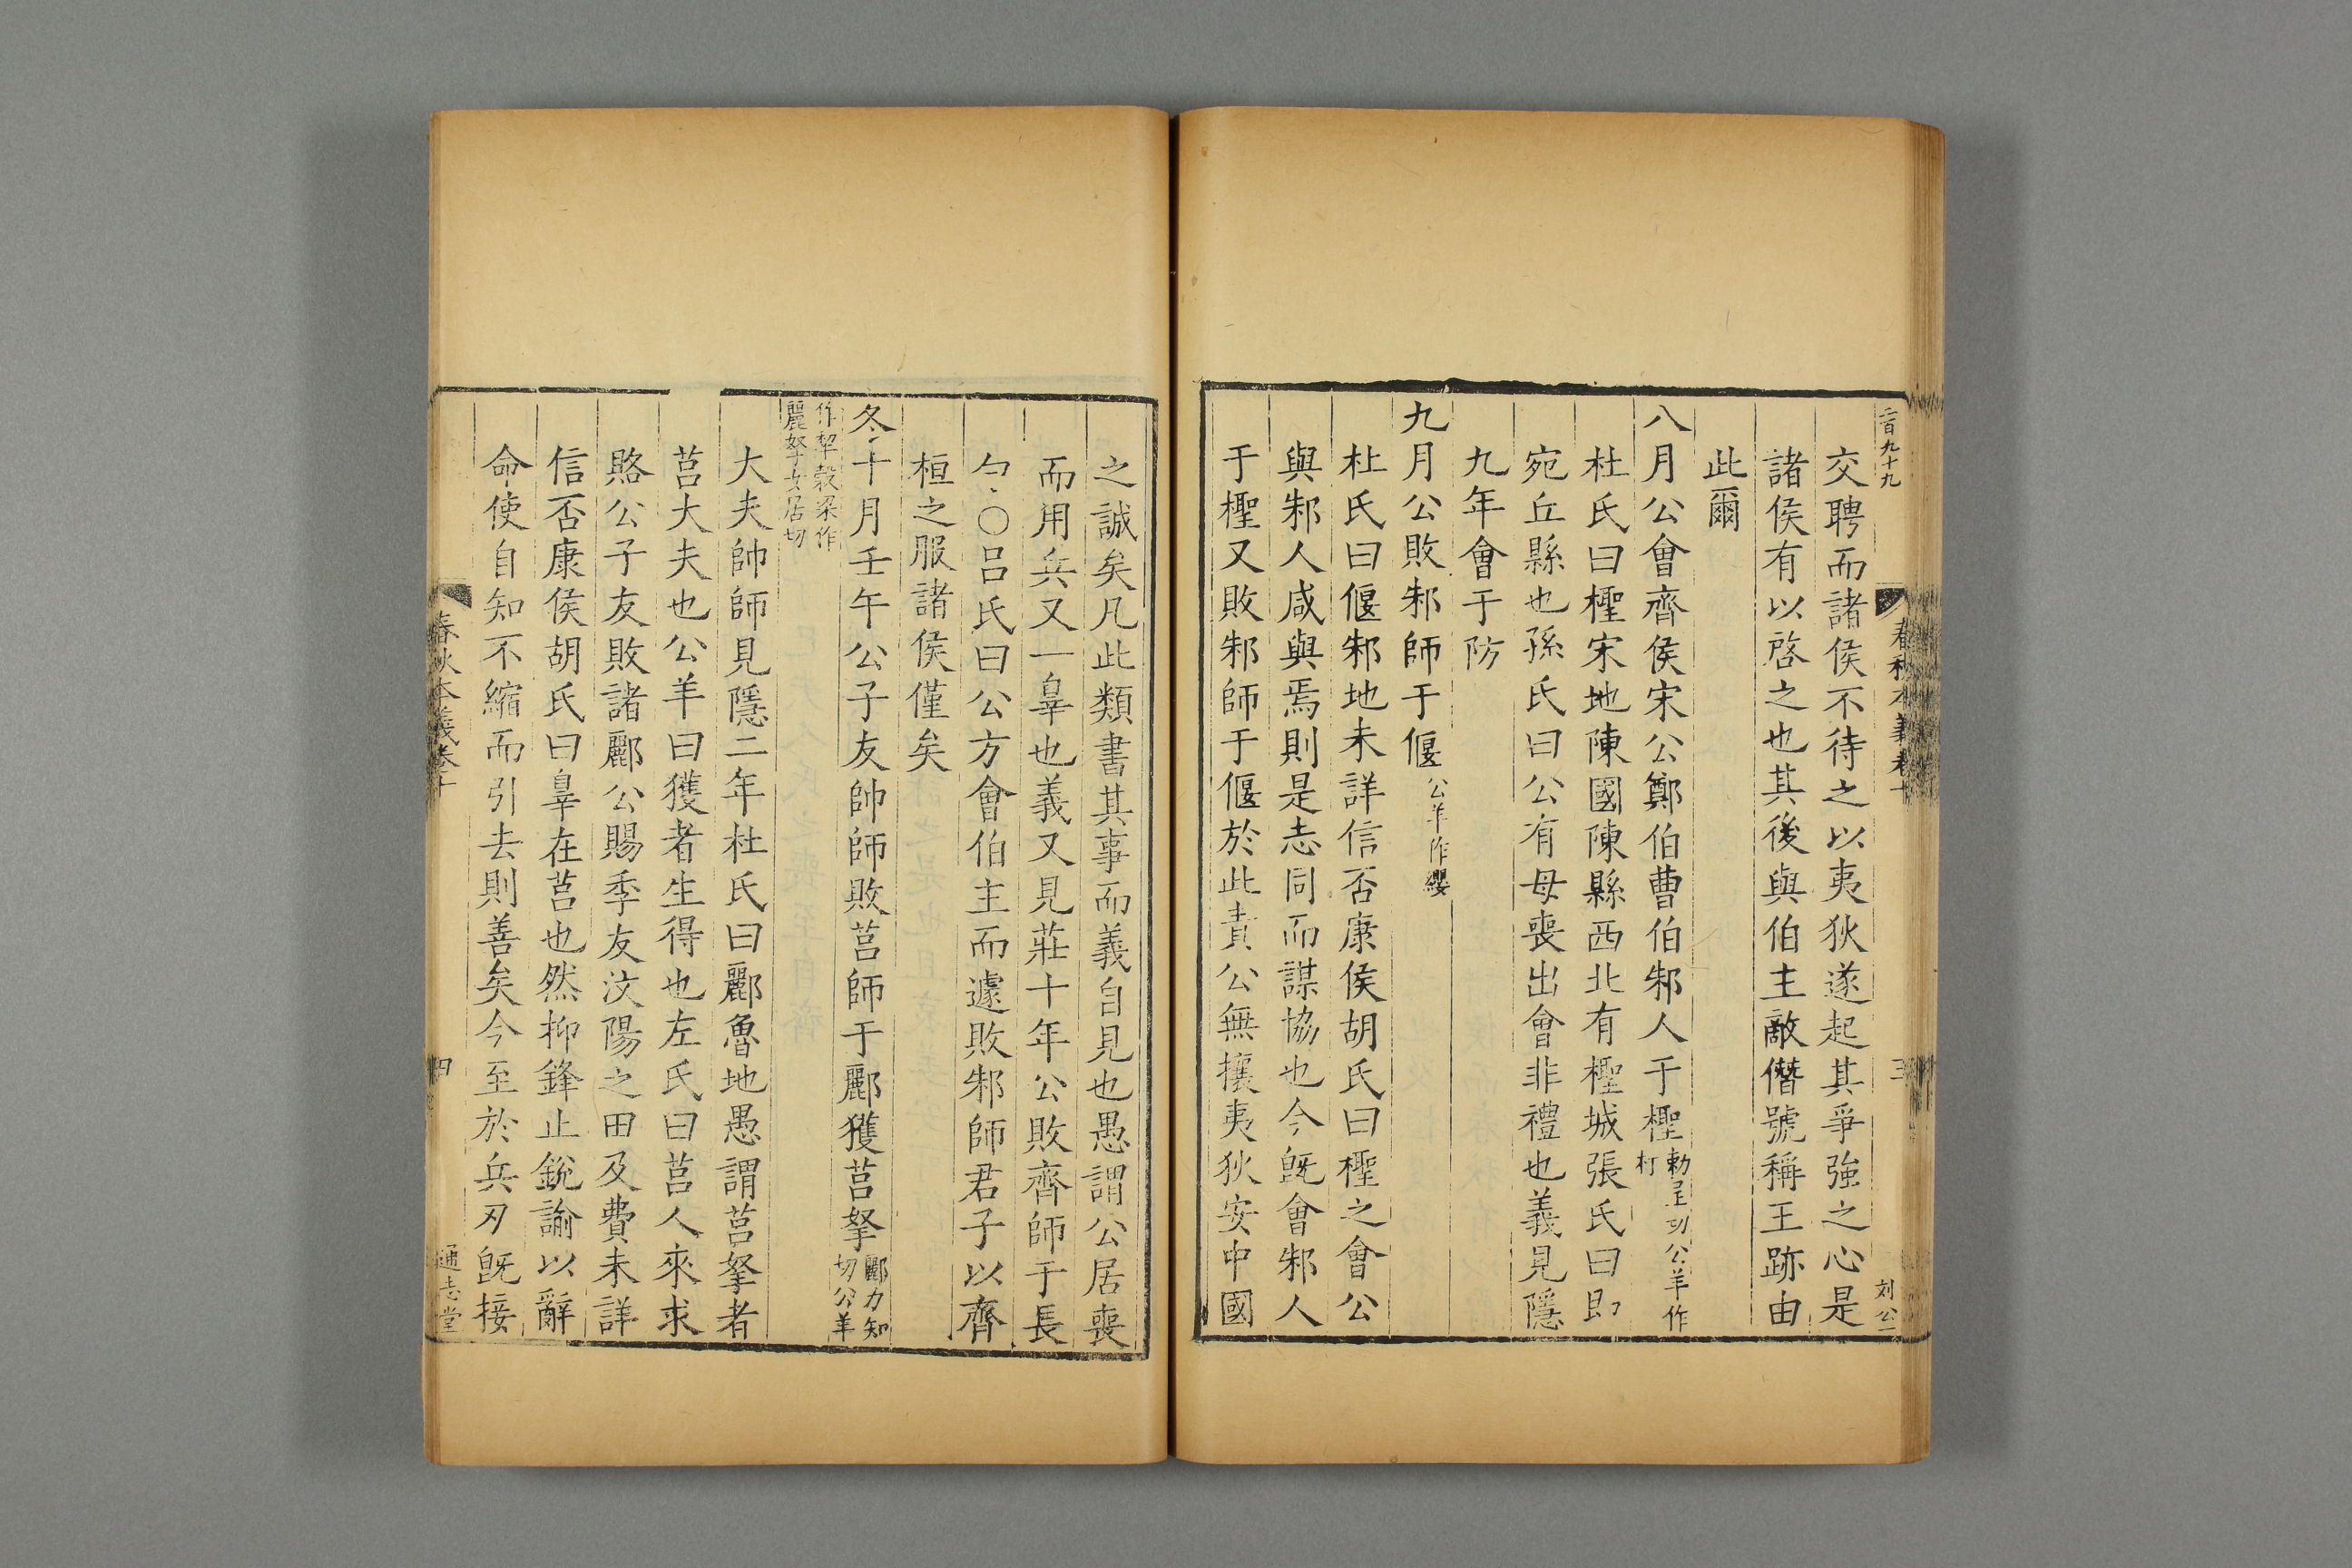 二百九十九
春秋本義卷十
三
刘公一
交聘而諸侯不待之以夷狄遂起其爭強之心是
諸侯有以啓之也其後與伯主敵僭號稱王跡由
此爾
八月公會齊侯宋公鄭伯曹伯邾人于檉勑呈切公羊作
朾
杜氏曰檉宋地陳國陳縣西北有檉城張氏曰即
宛丘縣也孫氏曰公有母喪出會非禮也義見隱
九年會于防
九月公敗邾師于偃公羊作纓
杜氏曰偃邾地未詳信否康侯胡氏曰檉之會公
與邾人咸與焉則是志同而謀協也今旣會邾人
于檉又敗邾師于偃於此責公無攘夷狄安中國
之誠矣凡此類書其事而義自見也愚謂公居喪
而用兵又一辠也義又見莊十年公敗齊師于長
勺○呂氏曰公方會伯主而遽敗邾師君子以齊
桓之服諸侯僅矣
冬十月壬午公子友帥師敗莒師于酈獲莒挐酈力知
切公羊
作犂穀梁作
麗挐女居切
大夫帥師見隱二年杜氏曰酈魯地愚謂莒挐者
莒大夫也公羊曰獲者生得也左氏曰莒人來求
賂公子友敗諸酈公賜季友汶陽之田及費未詳
信否康侯胡氏曰辠在莒也然抑鋒止銳諭以辭
命使自知不縮而引去則善矣今至於兵刃旣接
春秋本義卷十
四
通志堂